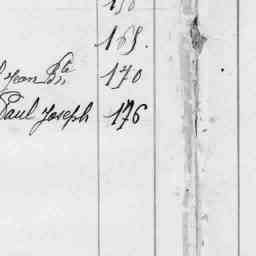 165.
Jean Bte 170
Paul Joseph 176